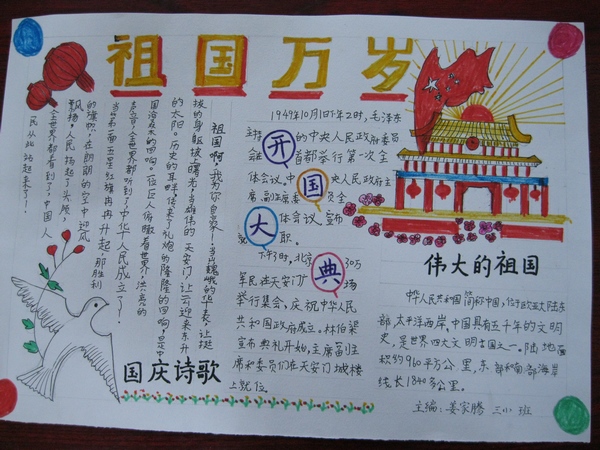 祖国万岁
祖国啊,我为你自豪!当巍峨的华表,让挺
拔的身躯披
的太阳。历史的耳畔,传来了礼炮的隆隆的回响,
国
声音,全世界都听到了,中华人民成立了!
当第一面五星红旗冉冉升起,那胜利
的旗帜,在朗朗的空中迎风
飘扬。人民扬起了头颅,
全世界都看到了,中国人
民从此站起来了!
国庆诗歌
开国大典
1949年10月1日下午2时,毛泽东
的中央人民政府委员
首都举行第一次全
体会议。中央人民政府主
席,副主席
体会议,宣布
就职。
下午3时,北京30万
军民在天安门广场
举行集会,庆祝中华人民
共和国政府成立。林伯渠
宣布典礼开始,主席副主
席和委员们在天安门城楼
上就位
伟大的祖国
中华人民共和国简称中国,位于欧亚大陆东
部,太平洋西岸,中国具有五千年的文明
史,是世界四大文明古国之一。陆地面
积约960平方公里,东部和南部海岸
线长1840多公里。
主编:姜家腾 三(1)班